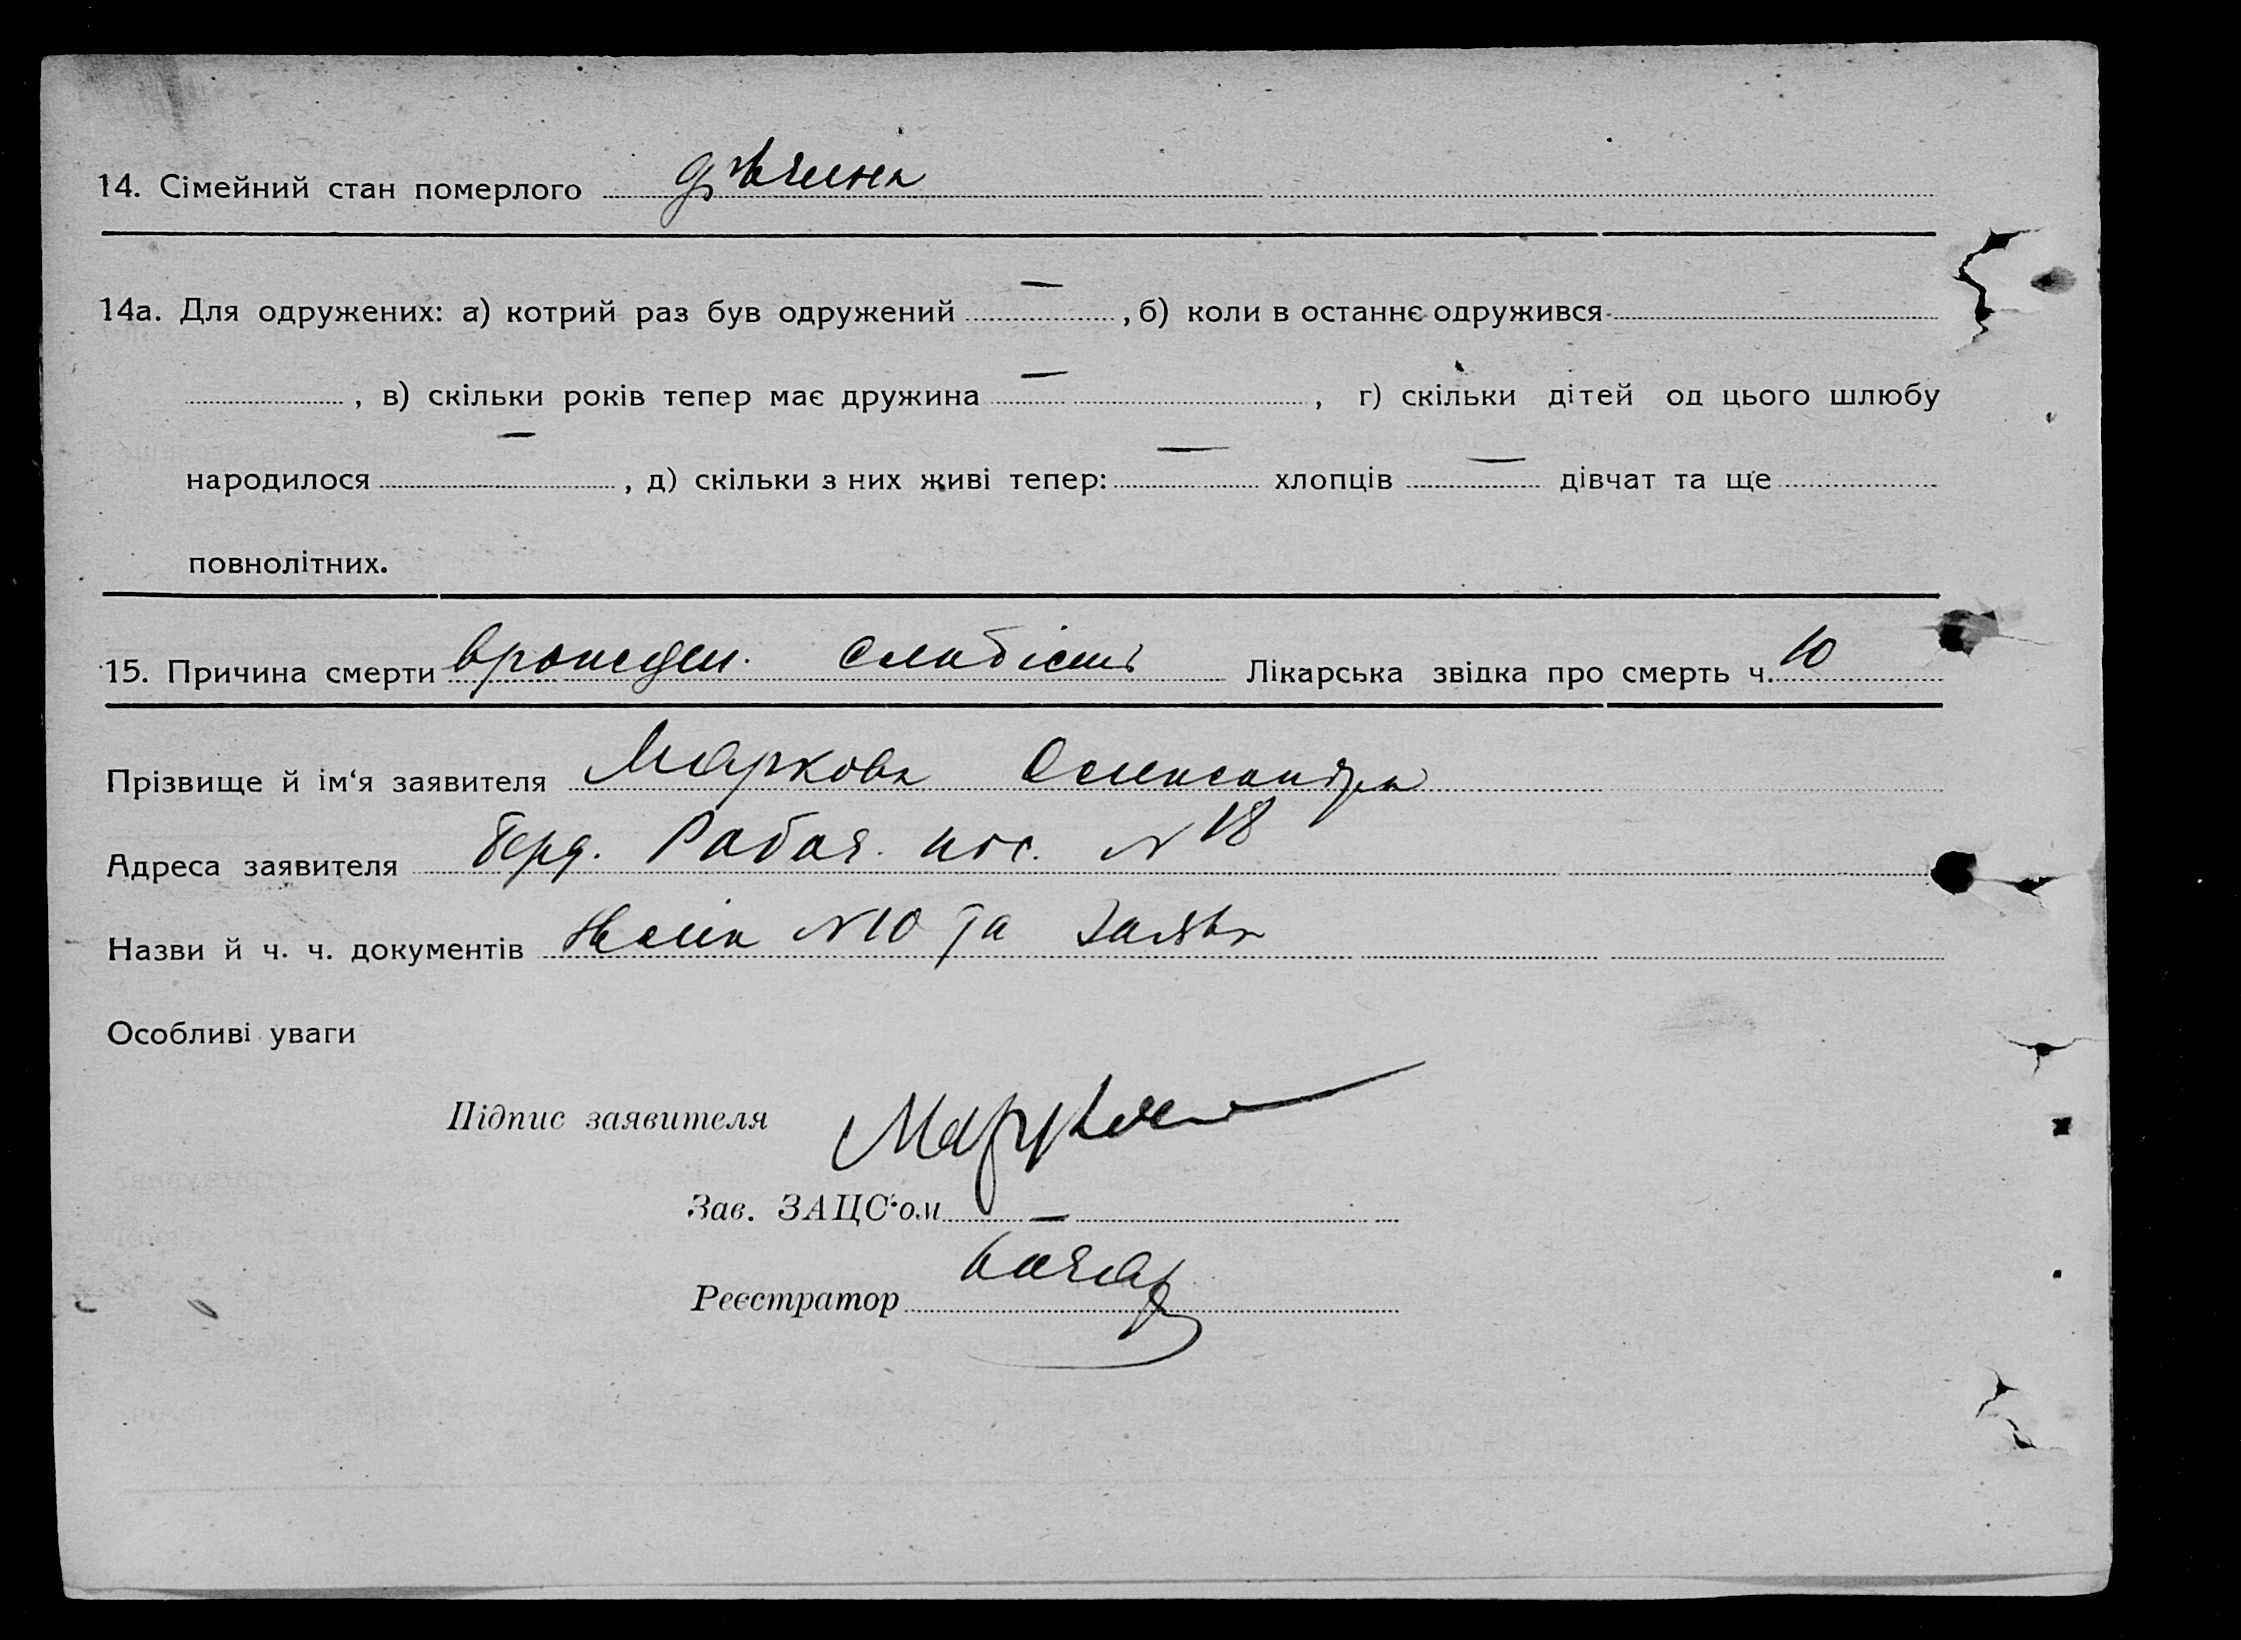 14. Сімейний стан померлого дівчина
14а. Для одружених: а) котрий раз був одружений — , б) коли в останнє одружився
, в) скільки років тепер має дружина — , г) скільки дітей од цього шлюбу
народилося — , д) скільки з них живі тепер: — хлопців — дівчат та ще
повнолітних.
15. Причина смерти врожден. слабість Лікарська звідка про смерть ч. 10
Прізвище й ім‘я заявителя Маркова Олександра
Адреса заявителя Берд. Рабоч. пос. N 18
Назви й ч. ч. документів N10 та заява
Особливі уваги
Підпис заявителя
Зав. ЗАЦС‘ом —
Реєстратор